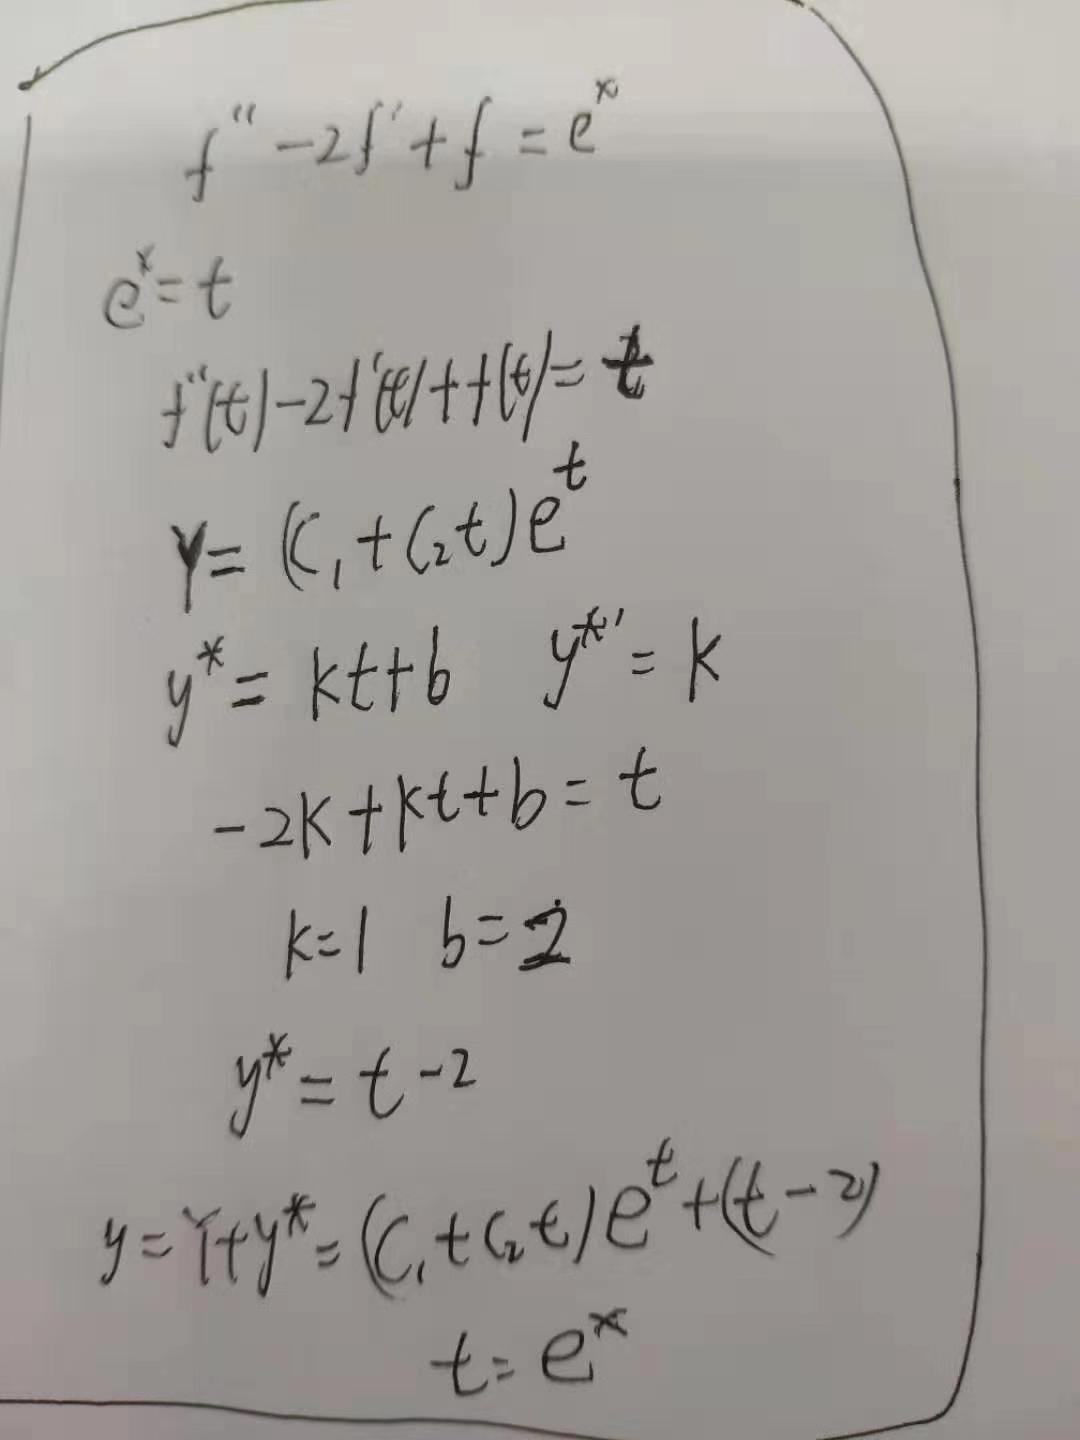 f'' - 2f' + f = e^x
e^x = t
f''(t) - 2f'(t) + f(t) = t
Y = (C₁ + C₂t)e^t
y* = kt + b   y*' = k
-2k + kt + b = t
k = 1   b = 2
y* = t - 2
y = Y + y* = (C₁ + C₂t)e^t + (t - 2)
t = e^x